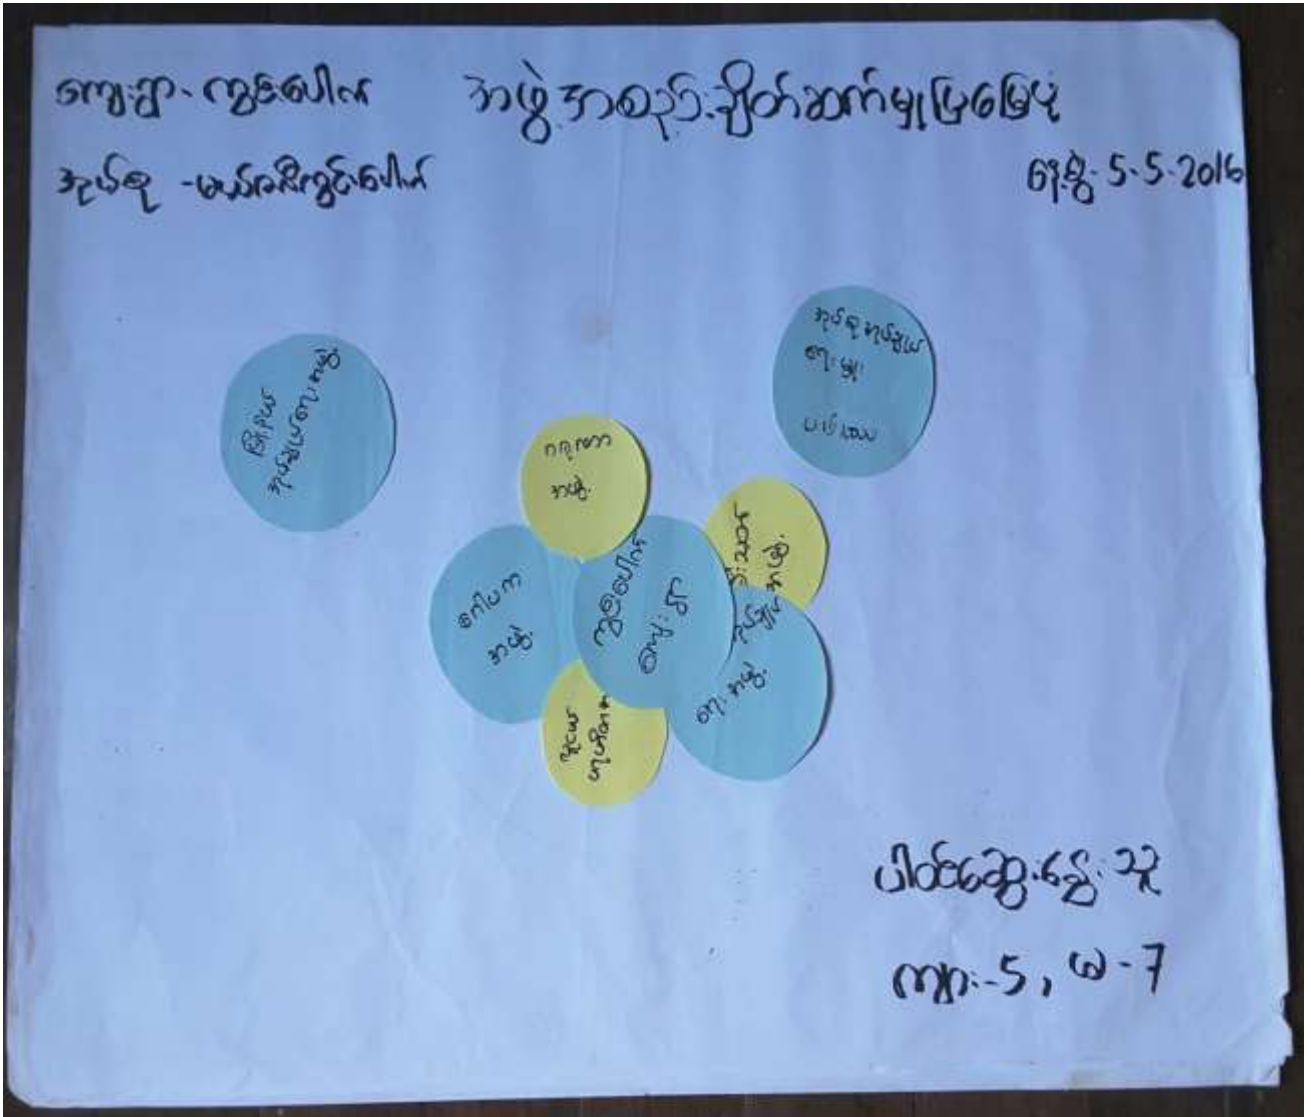 ကျေးရွာ- ကွင်းပေါက်
အဖွဲ့အစည်းချိတ်ဆက်မှုပြမြေပုံ
အုပ်စု -မယ်ဇလီကွင်းပေါက်
နေ့စွဲ- 5-5-2016
မြို့နယ်
အုပ်ချုပ်ရေးအဖွဲ့
အုပ်စုအုပ်ချုပ်
ရေးမှူး
အဖွဲ့
ဂေါပက
အဖွဲ့
ကွင်းပေါက်
ကျေးရွာ
မီးသတ်
အဖွဲ့
အုပ်ချုပ်
ရေးအဖွဲ့
လူငယ်
ပါဝင်ဆွေးနွေးသူ
ကျား-5, မ-7